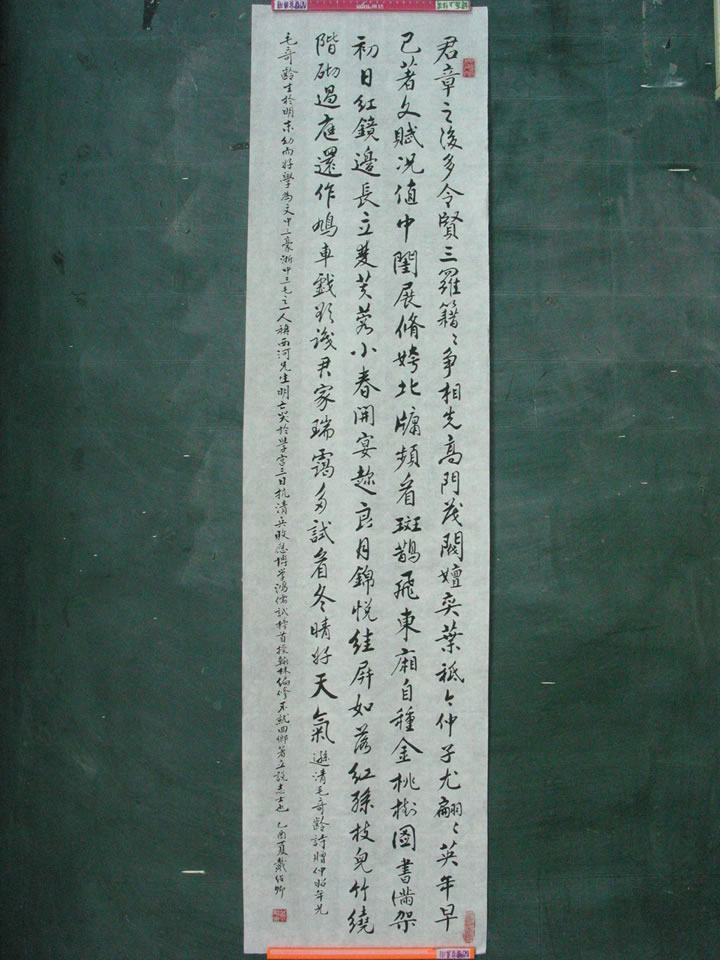 君章之後多令賢三羅籍〻爭相先高門茂閥嬗奕葉祗〻仲子尤翩〻英年早
已著文賦況值中閨展脩姱北牖頻看斑鵲飛東廂自種金桃樹圖書滿架
初日紅鏡邊長立芰芙蓉小春開宴趁良月錦帨絓屏如落紅孫枝兒竹繞
階砌過庭還作鳩車戲欲識君家瑞靄多試看冬晴好天氣 遜清毛奇齡詩贈仲昭年兄
毛奇齡生於明末幼而好學為文中一豪浙中三毛之一人稱西河先生明亡哭於學宮三日抗清兵敗應博學鴻儒試授翰林編修不就回鄉著立說志士也 乙酉夏戴紹卿